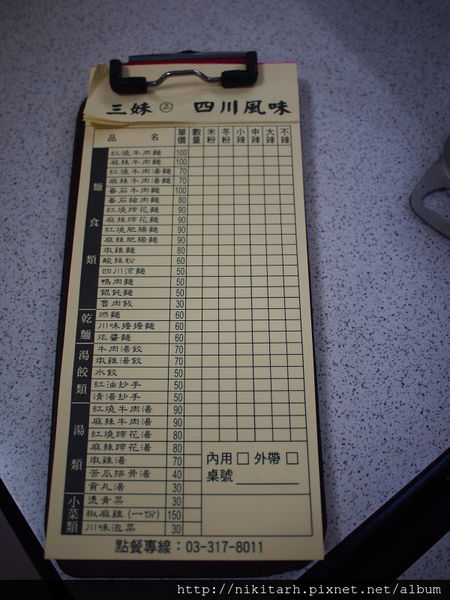 三妹 ㊣ 四川風味
品名 單價 數量 米粉 冬粉 小辣 中辣 大辣 不辣
麵食類
紅燒牛肉麵 100
麻辣牛肉麵 100
紅燒牛肉湯麵 70
麻辣牛肉湯麵 70
蕃茄牛肉麵 100
蕃茄豬肉麵 80
紅燒蹄花麵 90
麻辣蹄花麵 90
紅燒肥腸麵 90
麻辣肥腸麵 90
燉雞麵 80
酸辣粉 60
四川涼麵 50
鴨肉麵 50
餛飩麵 50
魯肉飯 30
乾麵
燃麵 60
川味擔擔麵 60
炸醬麵 60
湯餃類
牛肉湯餃 70
燉雞湯餃 70
水餃 50
紅油抄手 50
清湯抄手 50
湯類
紅燒牛肉湯 90
麻辣牛肉湯 90
紅燒蹄花湯 80
麻辣蹄花湯 80
燉雞湯 70
苦瓜排骨湯 40
貢丸湯 30
小菜類
燙青菜 30
椒麻雞(一份) 150
川味泡菜 30
內用 □ 外帶 □
桌號
點餐專線：03-317-8011
http://nikitarh.pixnet.net/album